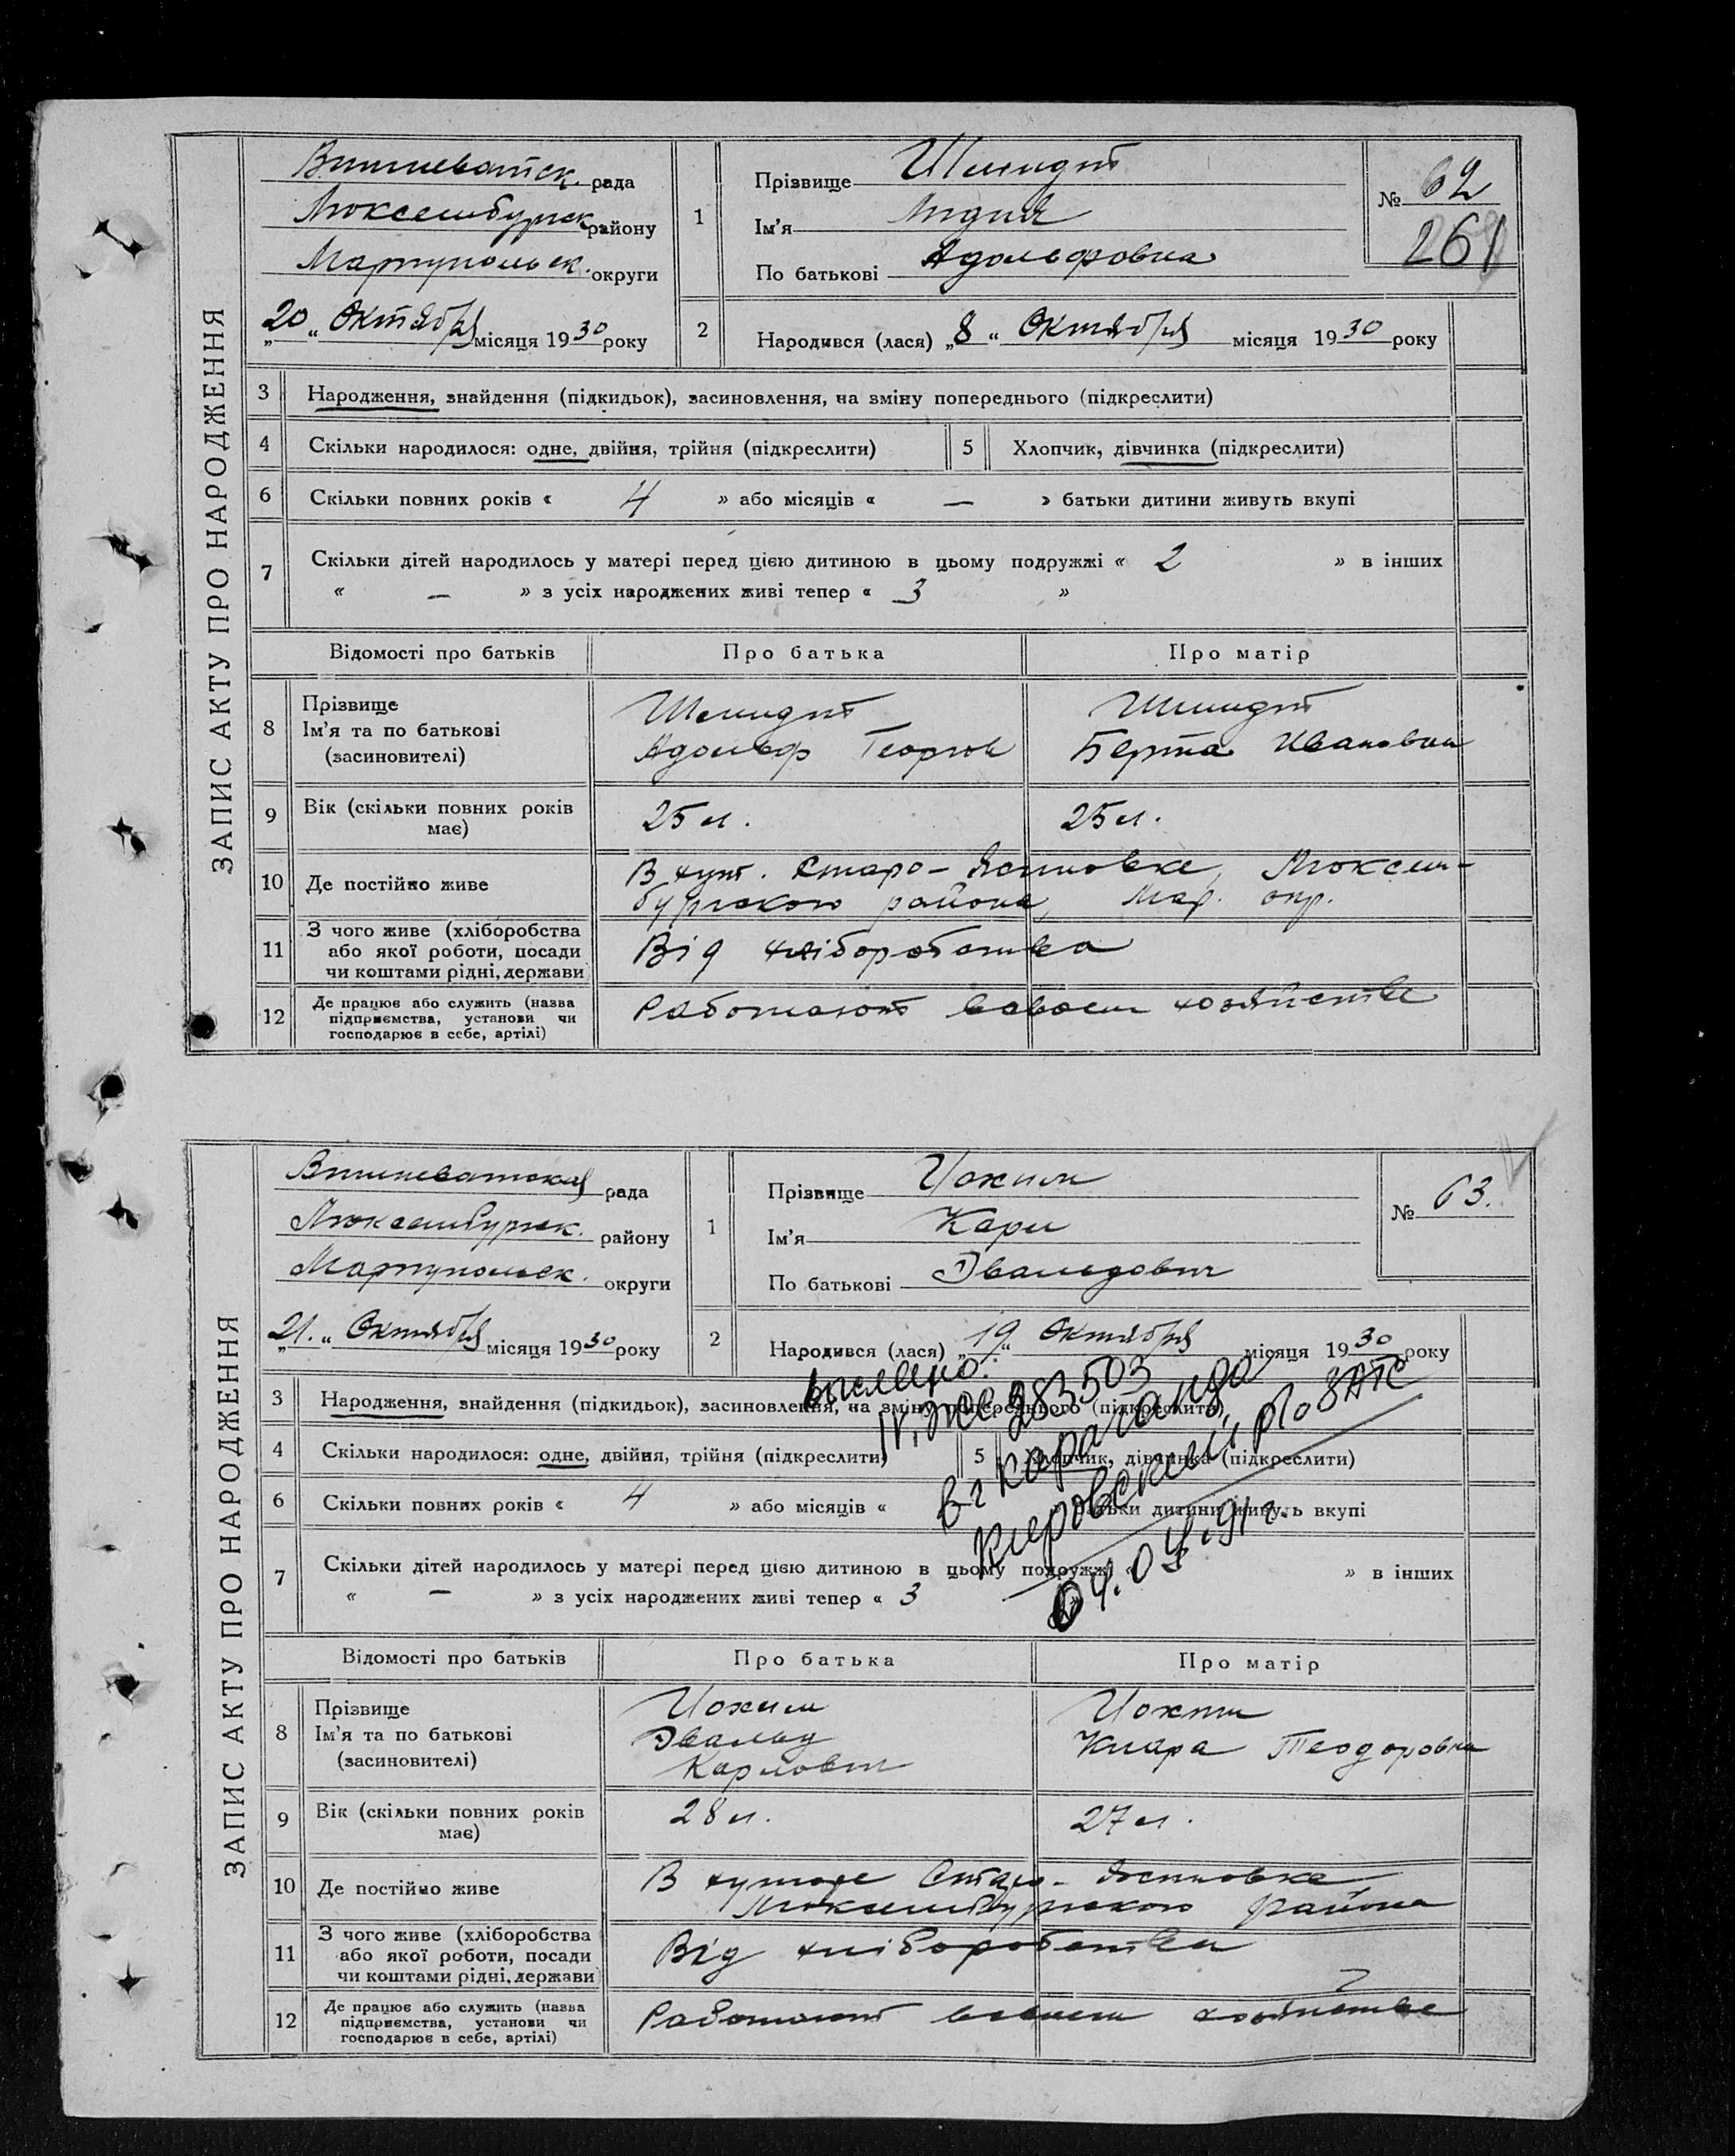 ЗАПИС АКТУ ПРО НАРОДЖЕННЯ
Вишневатск. рада
Люксембургск. району
Мариупольск. округи
„20“ Октября місяця 1930 року
1
Прізвище Шмидт
Ім'я Лидия
По батькові Адольфовна
№ 62
261
2 Народився (лася) „8“ Октября місяця 1930 року
3 Народження, знайдення (підкидьок), засиновлення, на зміну попереднього (підкреслити)
4 Скільки народилося: одне, двійня, трійня (підкреслити) 5 Хлопчик, дівчинка (підкреслити)
6 Скільки повних років « 4 » або місяців « — » батьки дитини живуть вкупі
7 Скільки дітей народилось у матері перед цією дитиною в цьому подружжі « 2 » в інших
« — » з усіх народжених живі тепер « 3 »
Відомості про батьків Про батька Про матір
8 Прізвище
Ім'я та по батькові
(засиновителі)
Шмидт
Адольф Георгов
Шмидт
Берта Ивановна
9 Вік (скільки повних років
має)
25 л. 25 л.
10 Де постійно живе
В хут. Старо- Люксем-
бургского района, Мар. окр.
11 З чого живе (хліборобства
або якої роботи, посади
чи коштами рідні, держави)
Від хліборобства
12 Де працює або служить (назва
підприємства, установи чи
господарює в себе, артілі)
Работают в своем хозяйстве
ЗАПИС АКТУ ПРО НАРОДЖЕННЯ
Вишневатская рада
Люксембургск. району
Мариупольск. округи
„21.“ Октября місяця 1930 року
1
Прізвище Иохим
Ім'я Карл
По батькові Эвальдович
№ 63.
2 Народився (лася) „19“ Октября місяця 1930 року
3 Народження, знайдення (підкидьок), засиновлення, на зміну попереднього (підкреслити)
4 Скільки народилося: одне, двійня, трійня (підкреслити) 5 Хлопчик, дівчинка (підкреслити)
6 Скільки повних років « 4 » або місяців « батьки дитини живуть вкупі
7 Скільки дітей народилось у матері перед цією дитиною в цьому подружжі « » в інших
« — » з усіх народжених живі тепер « 3 »
выслано:
283503
в г Караганда
Кировский р/о ЗАГС
04.04.91 г.
Відомості про батьків Про батька Про матір
8 Прізвище
Ім'я та по батькові
(засиновителі)
Иохим
Эвальд
Карлович
Иохим
Клара Теодоровна
9 Вік (скільки повних років
має)
28 л. 27 л.
10 Де постійно живе
В хуторе Старо-
Люксембургского района
11 З чого живе (хліборобства
або якої роботи, посади
чи коштами рідні, держави)
Від хліборобства
12 Де працює або служить (назва
підприємства, установи чи
господарює в себе, артілі)
Работают в своем хозяйстве